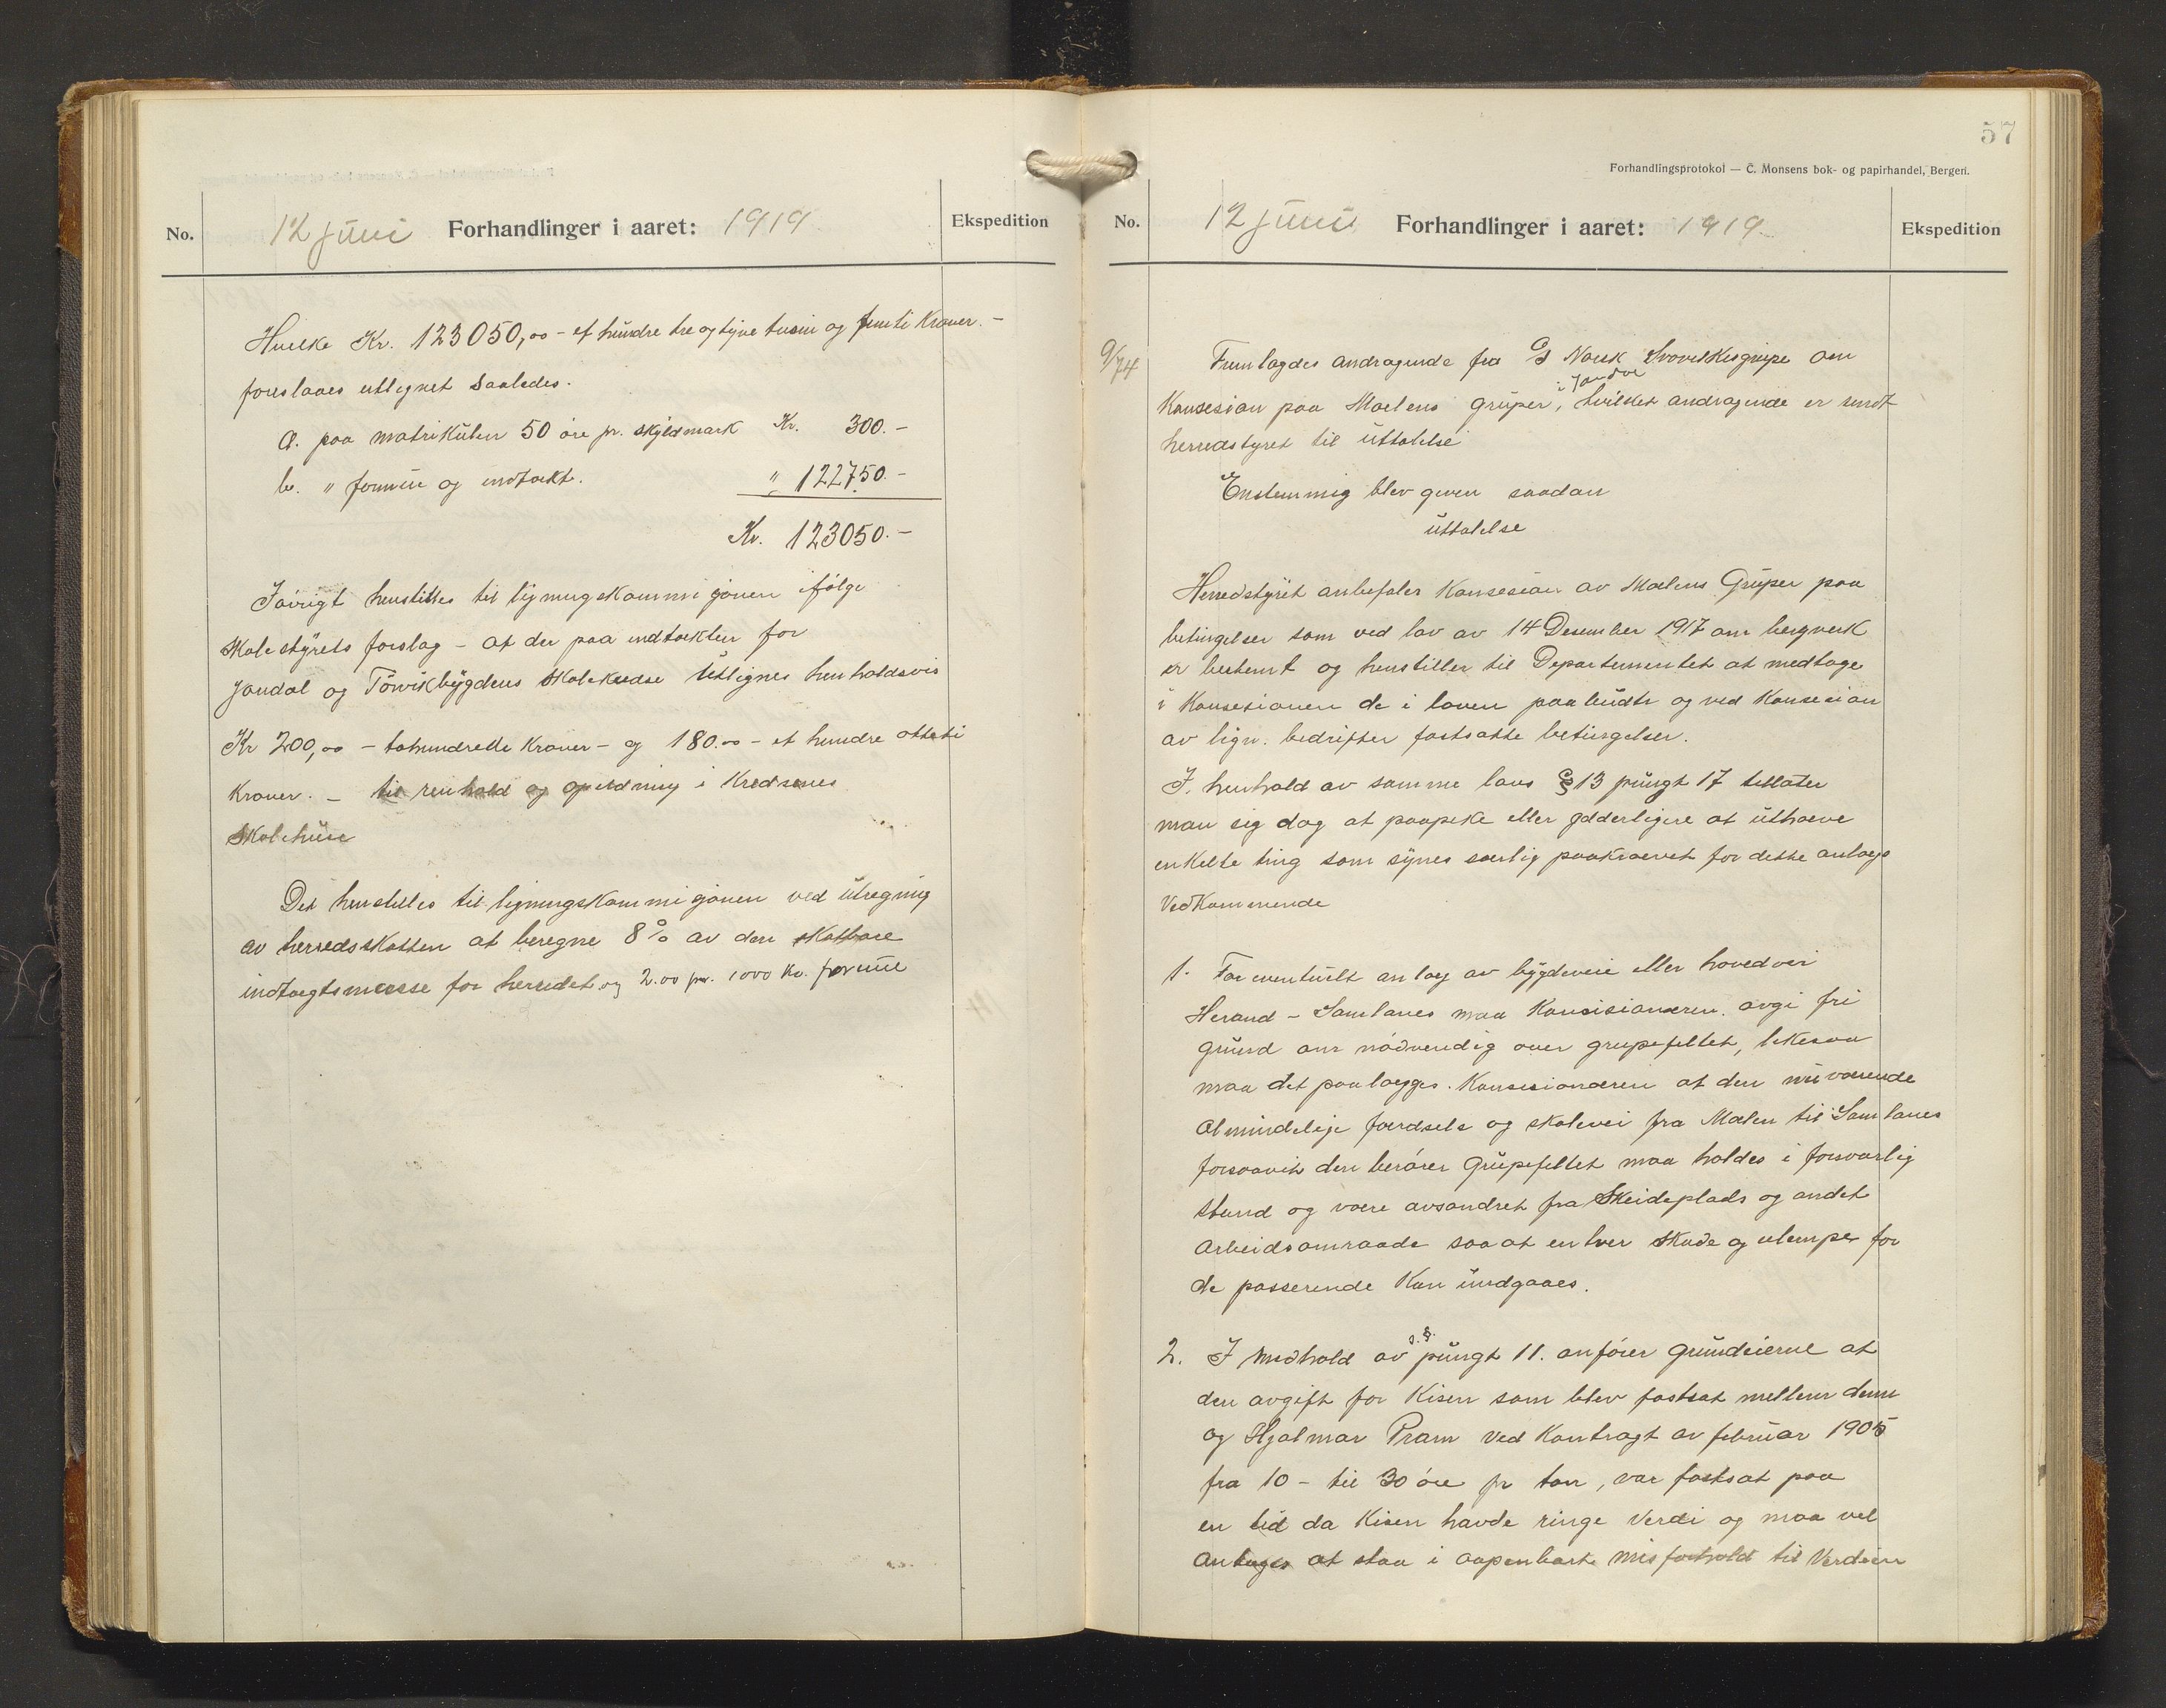 No.
12 juni Forhandlinger i aaret: 1919
Ekspedition
Hvilke Kr. 123050,00 – et hundre tre og tyve tusin og femti Kroner. –
foreslaaes utlignet saaledes.
a. paa matrikulen 50 øre pr. skyldmark Kr. 300.–
b. " formue og indtækt. " 122750.–
Kr. 123050.–
Iøvrigt henstilles til ligningskommisjonen ifølge
Skolestyrets forslag – at der paa indtækten for
Jondal og Torvikbygdens Skolekredse utlignes henholdsvis
Kr 200,00 – tohundrede Kroner – og 180.00 – et hundre otteti
Kroner. – til renhold og opildning i Kredsenes
Skolehuse
Det henstilles til ligningskommisjonen ved utregning
av herredsskatten at beregne 8 % av den skatbare
indtægtsmasse for herredet og 2.00 pr. 1000 Kr. formue
57
Forhandlingsprotokol — C. Monsens bok- og papirhandel, Bergen.
No.
12 juni Forhandlinger i aaret: 1919
Ekspedition
9/74
Fremlagdes andragende fra A/S Norsk Svovlkisgruper om
i Jondal
Konsesion paa Mælens gruper, hvilket andragende er sendt
herredstyret til uttalelse
Enstemmig blev given saadan
uttalelse
Herredstyret anbefaler Konsesion av Mælens Gruper paa
betingelser som ved lov av 14 Desember 1917 om bergverk
er bestemt og henstiller til Departementet at medtage
i Konsesionen de i loven paabudte og ved Konsesion
av lign. bedrifter fastsatte betingelser.
I. henhold av samme lovs § 13 pungt 17 tillater
man sig dog at paapeke eller ydderligere at uthæve
enkelte ting som synes særlig paakrævet for dette anlægs
Vedkommende
1. For eventuelt anlæg av bygdeveie eller hovedvei
Herand – Samlanes maa Konsisionæren. avgi fri
grund om nødvendig over grupefeltet, likesaa
maa det paalægges. Konsesionæren at den nuværende
Almindelige færdsels og skolevei fra Mælen til Samlanes
forsaavit den berører Grupefeltet maa holdes i forsvarlig
stand og være avsondret fra Skeideplads og andet
arbeidsomraade saa at enhver skade og ulempe for
de passerende Kan undgaaes.
2. I medhold av s. §. pungt 11. anfører grundeierne at
den avgift for Kisen som blev fastsat mellem dem
og Hjalmar Pram ved Kontragt av februar 1905
fra 10 – til 30 øre pr ton, var fastsat paa
en tid da Kisen havde ringe Verdi og maa vel
antages at staa i aapenbart misforhold til Verdien